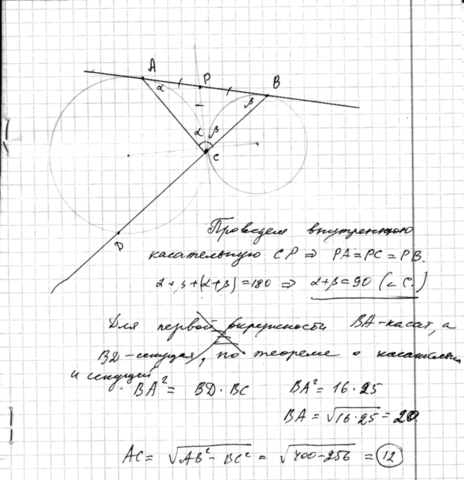 A
P
B
α
β
α β
C
D
Проведем внутреннюю
касательную CP ⇒ PA=PC=PB.
α+β+(α+β)=180 ⇒ α+β=90 (∠C.)
Для первой окружности BA-касат, а
BD-секущая, по теореме о касательной
и секущей
BA² = BD·BC
BA² = 16·25
BA = √16·25 = 20
AC = √AB² - BC² = √400-256 = 12